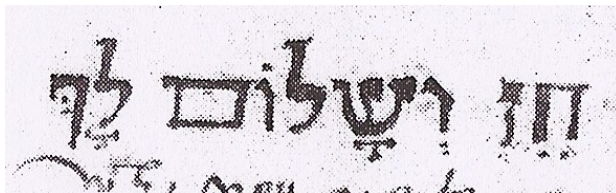 חֵן וְשָׁלוֹם לָךְ